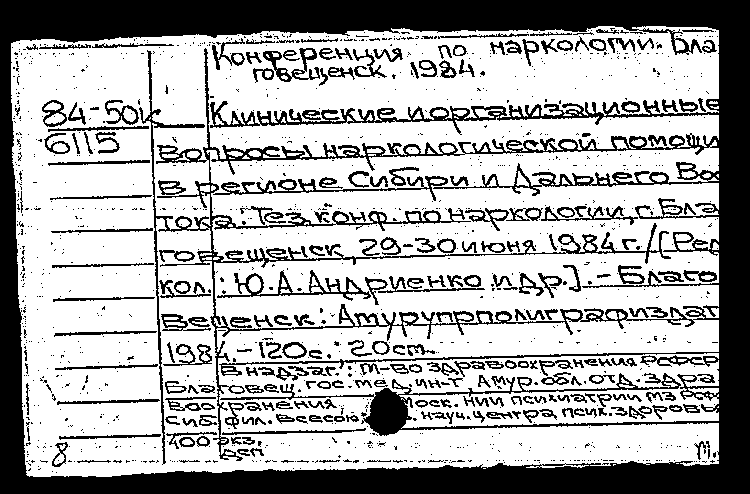 Конференция по наркологии. Бла
говещенск. 1984.
84-50к
6115
Клинические и организационные
вопросы наркологической помощи
в регионе Сибири и Дальнего Вос
тока: Тез. конф. по наркологии, г. Бла
говещенск, 29-30 июня 1984 г. / [Ред
кол.: Ю.А. Андриенко и др.]. - Благо
вещенск: Амурупрполиграфиздат
1984. - 120 с. 20 см.
В надзаг.: М-во здравоохранения РСФСР
Благовещ. гос. мед. ин-т, Амур. обл. отд. здра
воохранения, Моск. НИИ психиатрии МЗ РСФС
Сиб. фил. Всесоюз. науч. центра псих. здоровья
400 экз.
ДСП
8
М.